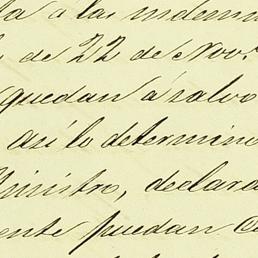 a á las indemn
de 22 de Nov.
quedan á salvo
así lo determine
Ministro, declara
ente puedan